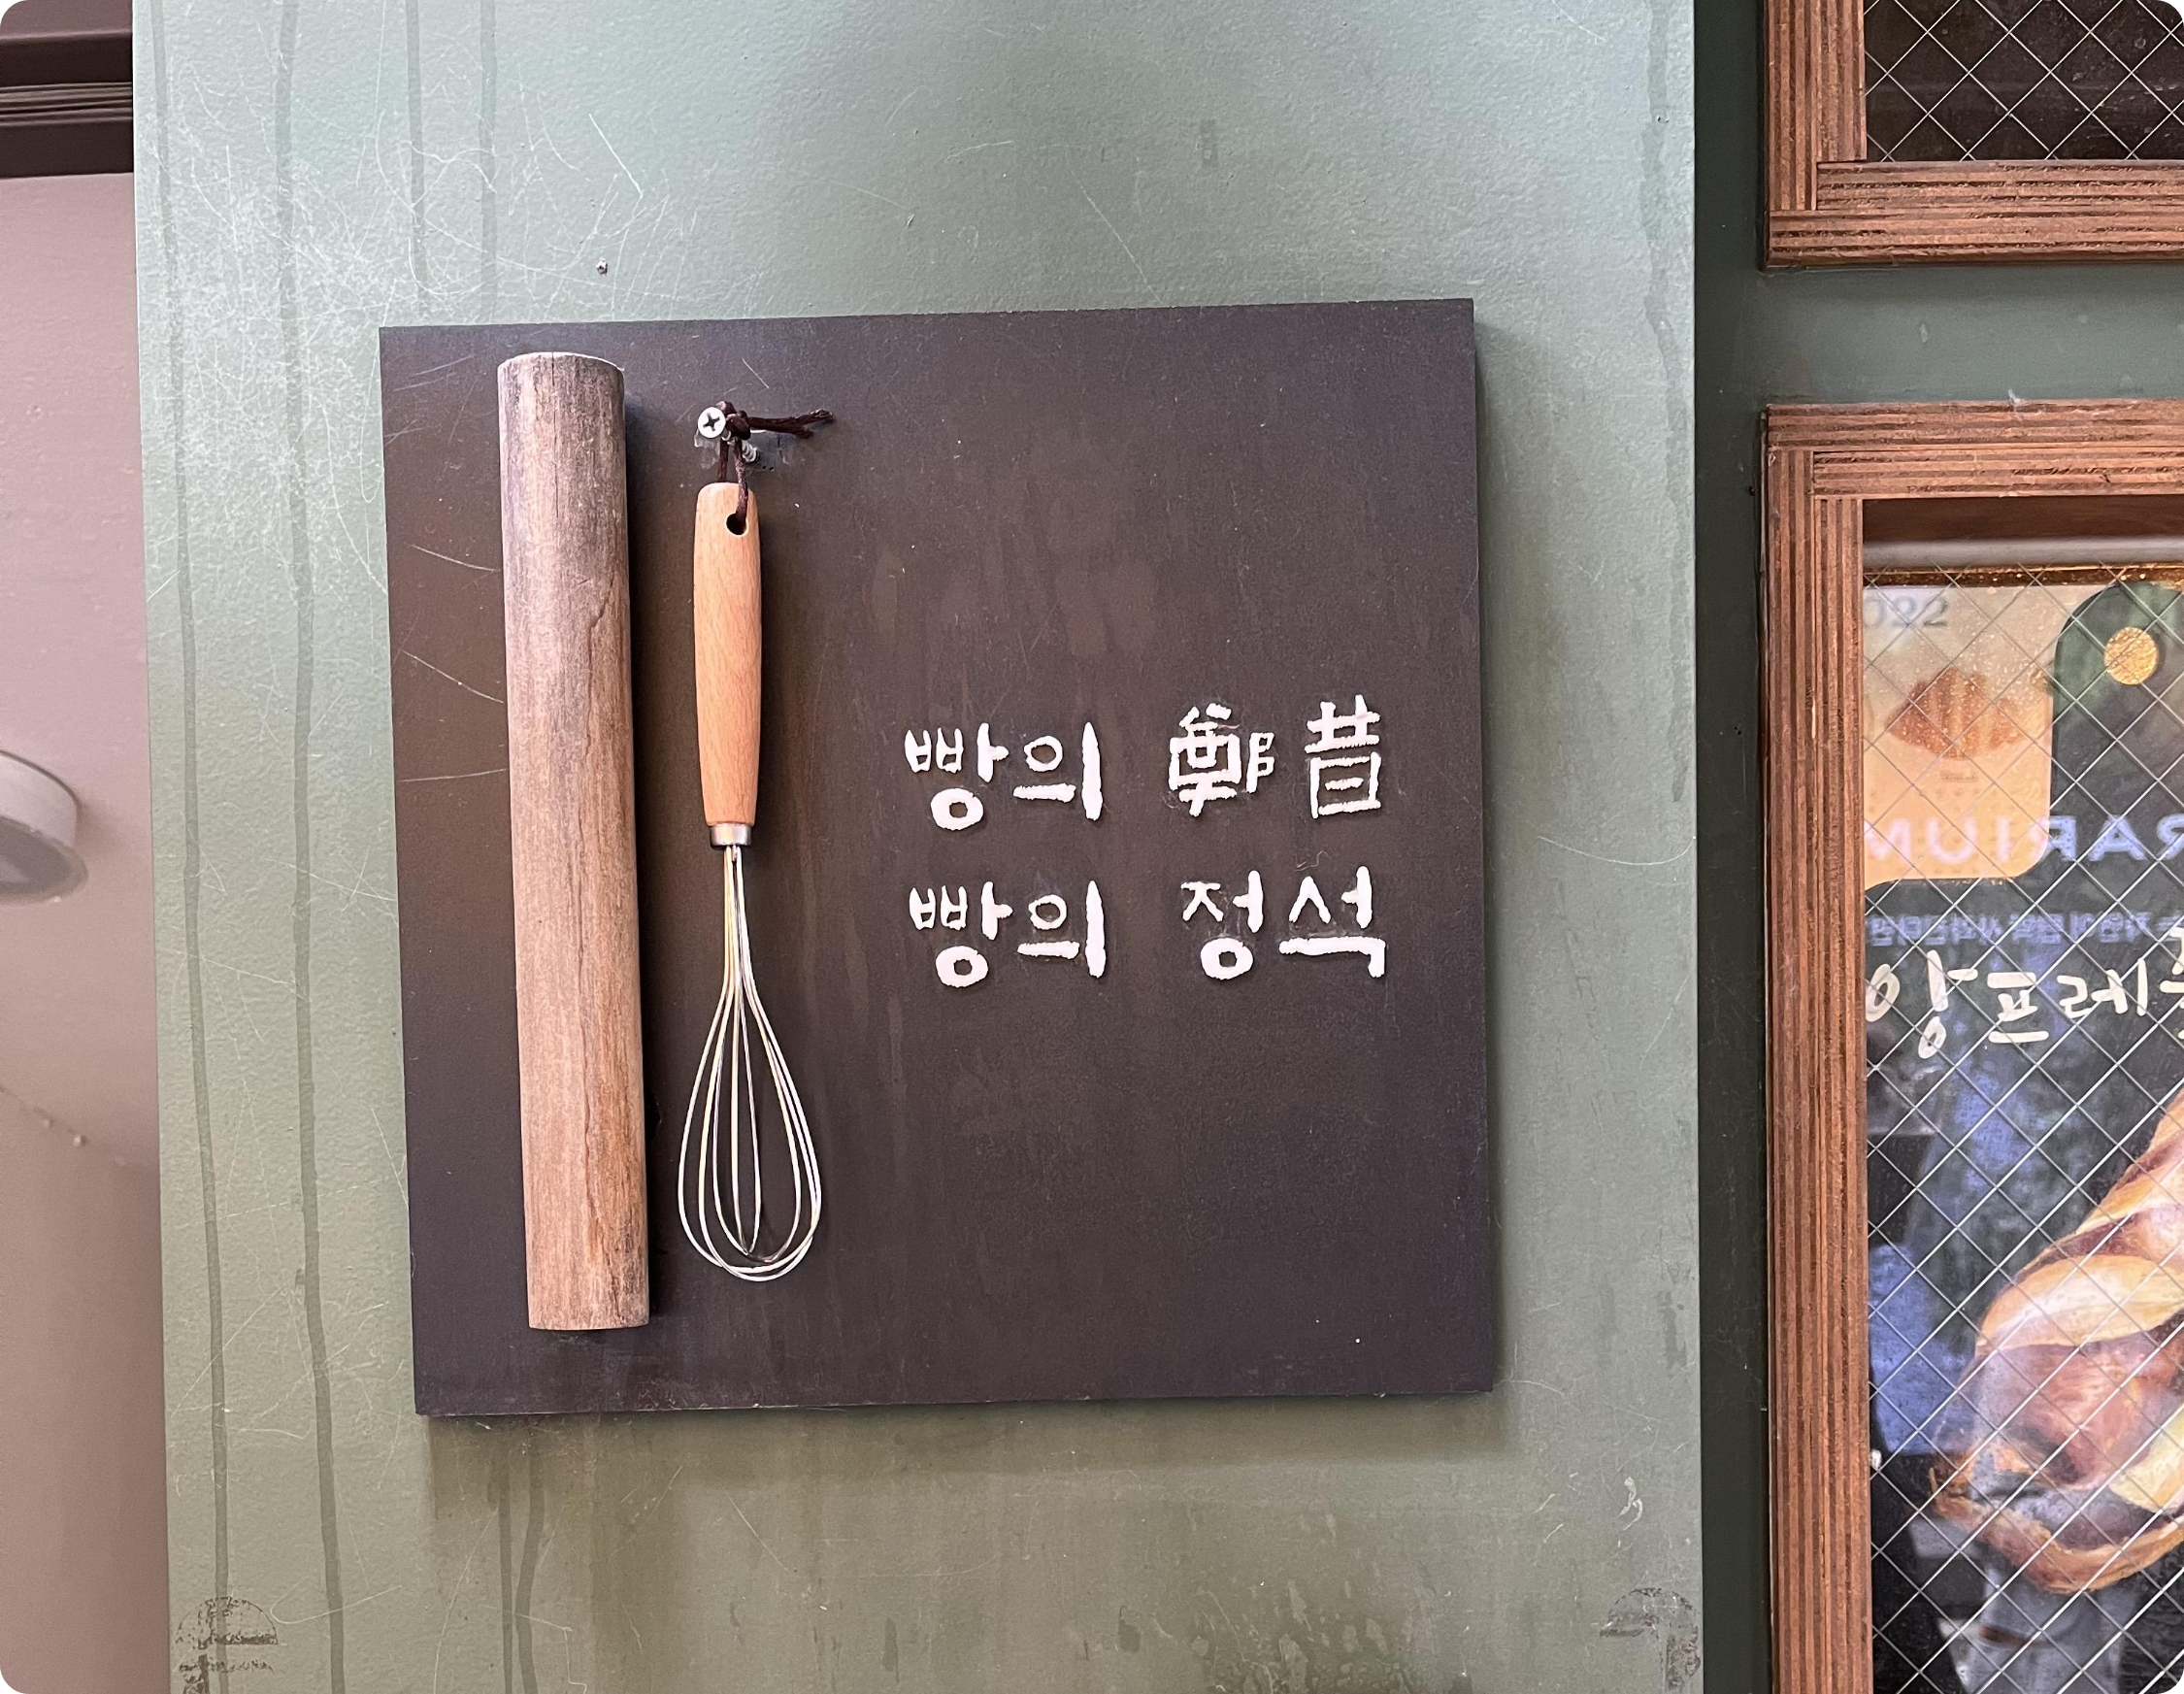 빵의 鄭昔
빵의 정석
022
RARIUM
앙프레